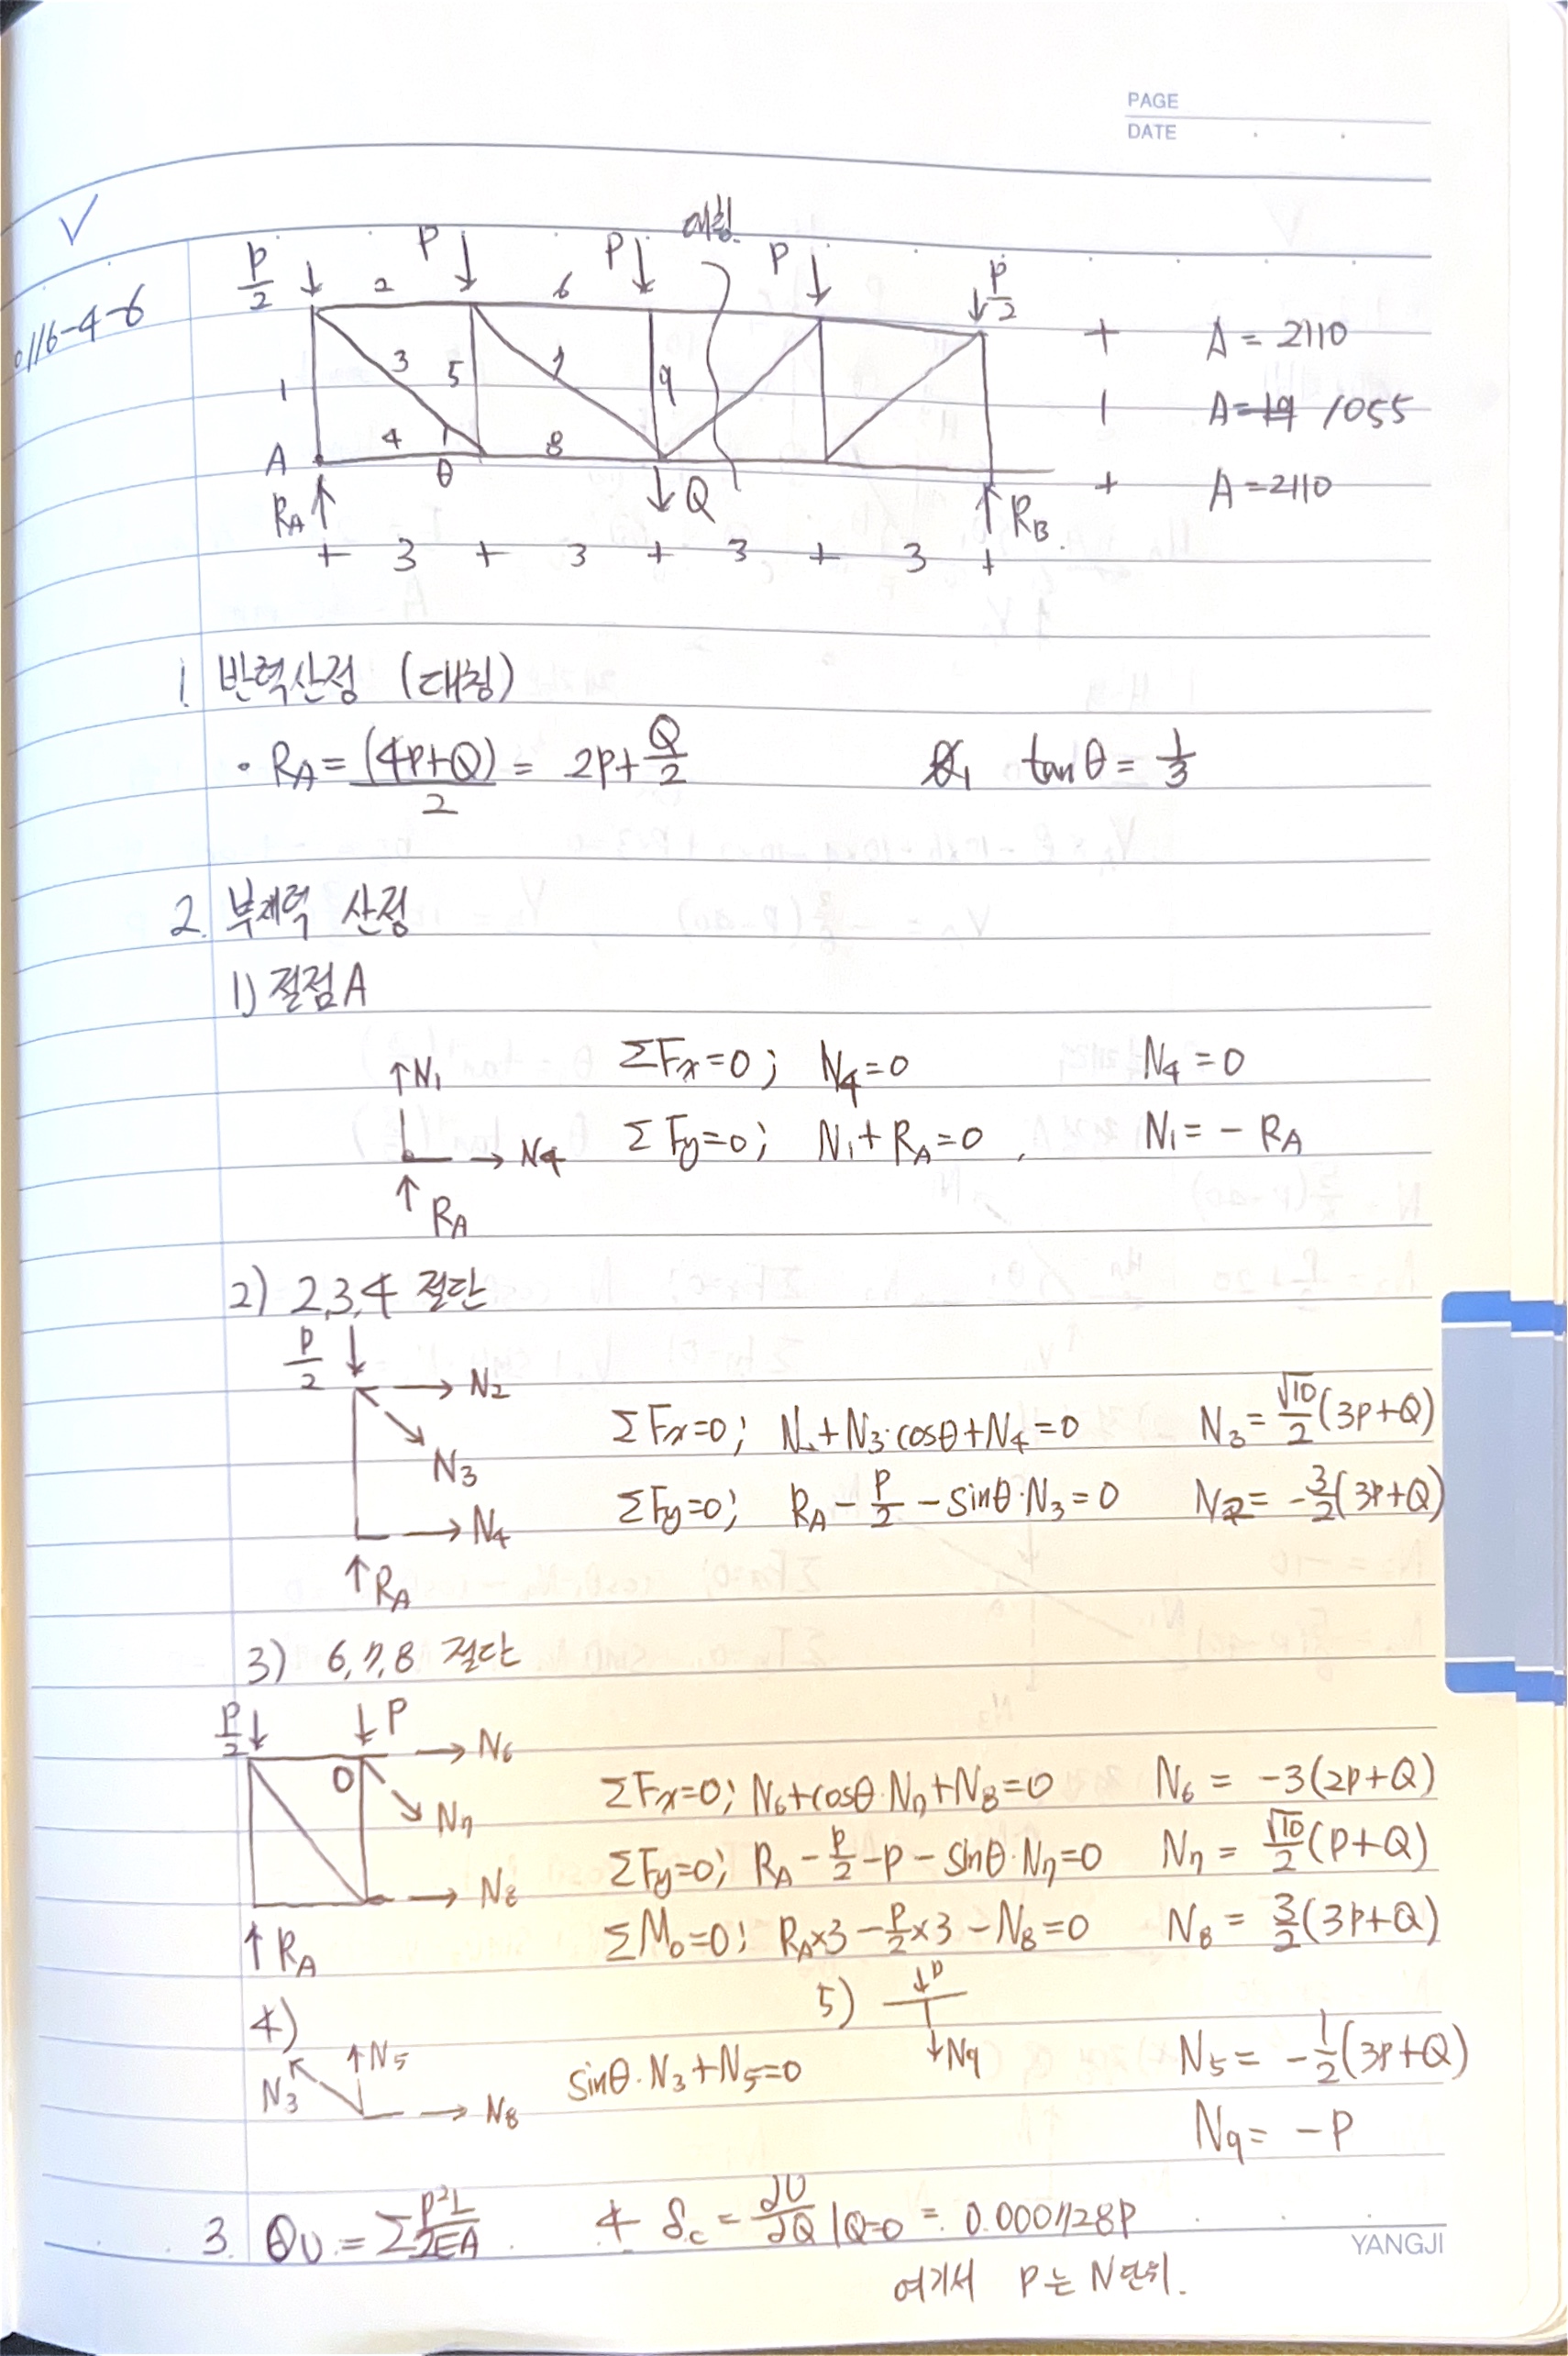 PAGE
DATE
0116-4-6
P/2 P P P P/2
2 6
1 3 5 7 9
A 4 θ 8
RA Q RB
+ 3 + 3 + 3 + 3 +
+ A = 2110
1 A = 1055
+ A = 2110
1. 반력산정 (대칭)
• RA = (4P+Q)/2 = 2P + Q/2 tanθ = 1/3
2. 부재력 산정
1) 절점A
N1 ΣFx=0; N4=0 N4=0
N4 ΣFy=0; N1+RA=0, N1=-RA
RA
2) 2,3,4 절단
P/2
N2
ΣFx=0; N2+N3·cosθ+N4=0 N3=√10/2(3P+Q)
N3
ΣFy=0; RA-P/2-sinθ·N3=0 N2=-3/2(3P+Q)
N4
RA
3) 6,7,8 절단
P/2 P
N6
O
ΣFx=0; N6+cosθ·N7+N8=0 N6=-3(2P+Q)
N7
ΣFy=0; RA-P/2-P-sinθ·N7=0 N7=√10/2(P+Q)
N8
ΣMo=0; RA×3-P/2×3-N8=0 N8=3/2(3P+Q)
RA
4) 5) P
N5 N9
N3 sinθ·N3+N5=0 N5=-1/2(3P+Q)
N8
N9=-P
3. U = Σ P²L/2EA 4 δc = ∂U/∂Q |Q=0 = 0.000728P
여기서 P는 N단위.
YANGJI